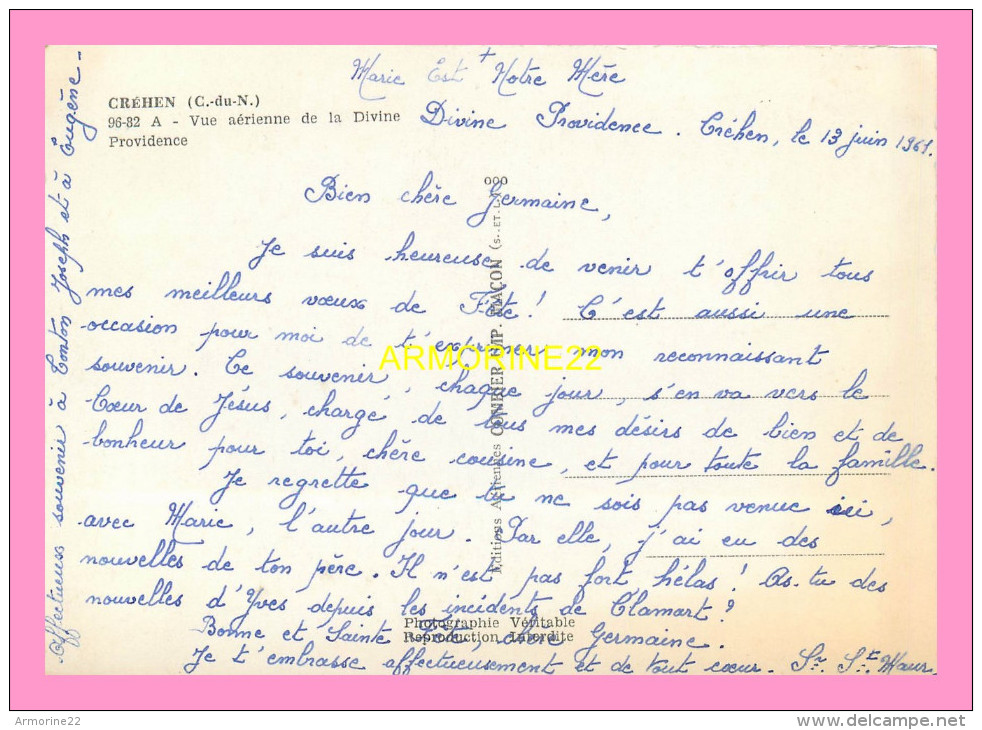 Marie Est + Notre Mère
CRÉHEN (C.-du-N.)
96-82 A - Vue aérienne de la Divine
Providence
Divine Providence. Créhen, le 13 juin 1961.
Bien chère Germaine,
Je suis heureuse de venir t'offrir tous
mes meilleurs vœux de Fête! C'est aussi une
occasion pour moi de t'exprimer mon reconnaissant
souvenir. Ce souvenir, chaque jour, s'en va vers le
Cœur de Jésus, chargé de tous mes désirs de bien et de
bonheur pour toi, chère cousine, et pour toute la famille.
Je regrette que tu ne sois pas venue ici,
avec Marie, l'autre jour. Par elle, j'ai eu des
nouvelles de ton père. Il n'est pas fort hélas! As-tu des
nouvelles d'Yves depuis les incidents de Clamart?
Bonne et Sainte Fête, chère Germaine.
Je t'embrasse affectueusement et de tout cœur. Sr. St. Maur.
Affectueux souvenir à Tonton Joseph et à Eugène-
Editions Aériennes COMBIER IMP. MACON (S.-ET-L.)
Photographie Véritable
Reproduction Interdite
ARMORINE22
Armorine22
delcampe.net